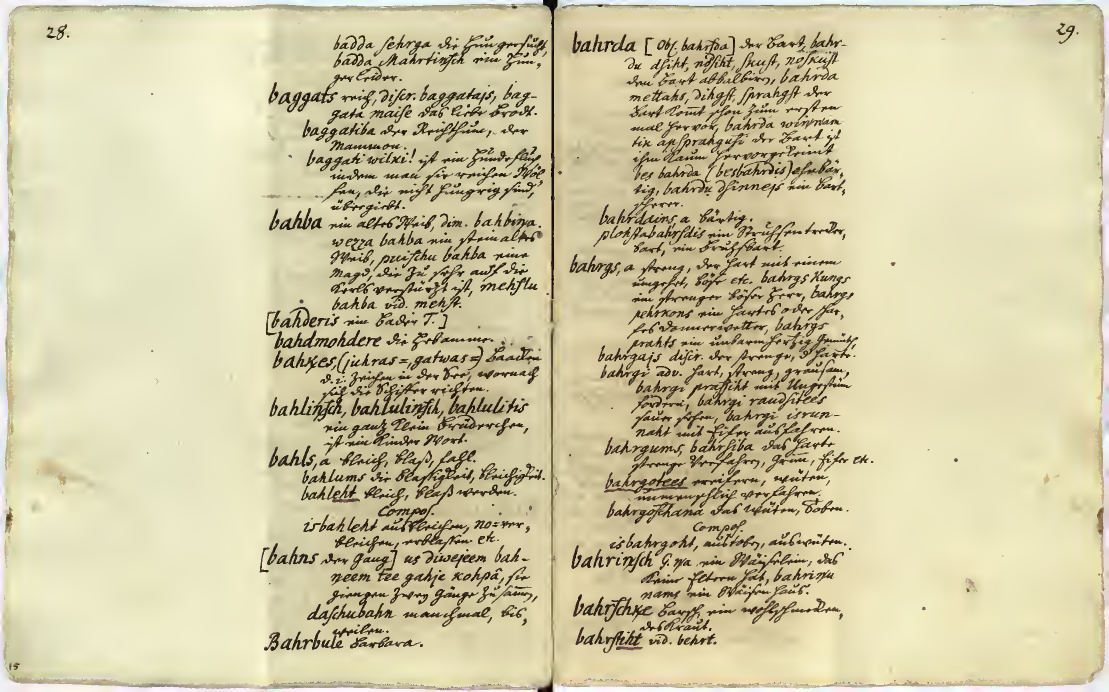 28.
badda sehrga die Hungersucht,
badda Mahrtinsch ein Hun-
gerleider.
baggats reich, discr. baggatajs, bag-
gata maise das liebe Brodt.
baggatiba der Reichthum, der
Mammon.
baggati wilki! ist ein Hundefluch
indem man sie reichen Wöl-
fen, die nicht hungrig sind,
übergiebt.
bahba ein altes Weib, dim. bahbiņa.
wezza bahba ein steinaltes
Weib, puischu bahba eine
Magd, die zu sehr auf die
Kerls verstürzt ist, mehslu
bahba vid. mehsli.
[bahderis ein Bader T.]
bahdmohdere die Hebamme.
bahkes, (juhras=, gatwas=) Baacken
d.i. Zeichen in der See, wornach
sich die Schiffer richten.
bahlinsch, bahlulinsch, bahlulitis
ein ganz klein Brüderchen,
ist ein Kinder Wort.
bahls, a bleich, blaß, fahl.
bahlums die Blassigkeit, Bleichigkeit.
bahleht bleich, blaß werden.
Compos.
isbahleht ausbleichen, no= ver-
bleichen, erblassen etc.
[bahns der Gang] us diwejeem bah-
neem tee gahje kohpâ, sie
giengen zwey Gänge zusamen,
daschubahn manchmal, bis-
weilen.
Bahrbule Barbara.
15
29.
bahrda [Obs. bahrsda] der Bart, bahr-
du dsiht, nodsiht, skust, noskust
den Bart abbalbiren, bahrda
mettahs, dihgst, sprahgst der
Bart komt schon zum ersten
mal hervor, bahrda wiņņam
tik apsprahgusi der Bart ist
ihm kaum hervorgekeimt
bes bahrda (besbahrdis) ohnbär-
tig, bahrdu dsinnejs ein Bart-
scherer.
bahrdains, a bärtig.
plohstabahrsdis ein Struhsentreiber,
bart, ein
bahrgs, a streng, der hart mit einem
umgehet, böse etc. bahrgs Kungs
ein strenger böser Herr, bahrgs
pehrkons ein hartes oder schar-
fes Donnerwetter, bahrgs
prahts ein unbarmherzig Gemüth.
bahrgajs discr. der strenge, d harte.
bahrgi adv. hart, streng, grausam,
bahrgi prassiht mit Ungestüm
fordern, bahrgi raudsitees
sauer sehen, bahrgi isrun-
naht mit Eifer ausfahren.
bahrgums, bahrsiba das harte
strenge Verfahren, Grim, Eifer etc.
bahrgotees ereifern, wüten,
unmenschlich verfahren.
bahrgoschana das Wüten, Toben.
Compos.
isbahrgoht, austoben, auswüten.
bahrinsch G. ņa ein Wayselein, das
keine Eltern hat, bahriņu
nams ein Waysenhaus.
bahrschķe Barsch ein wohlschmecken-
des Kraut.
bahrstiht vid. behrt.